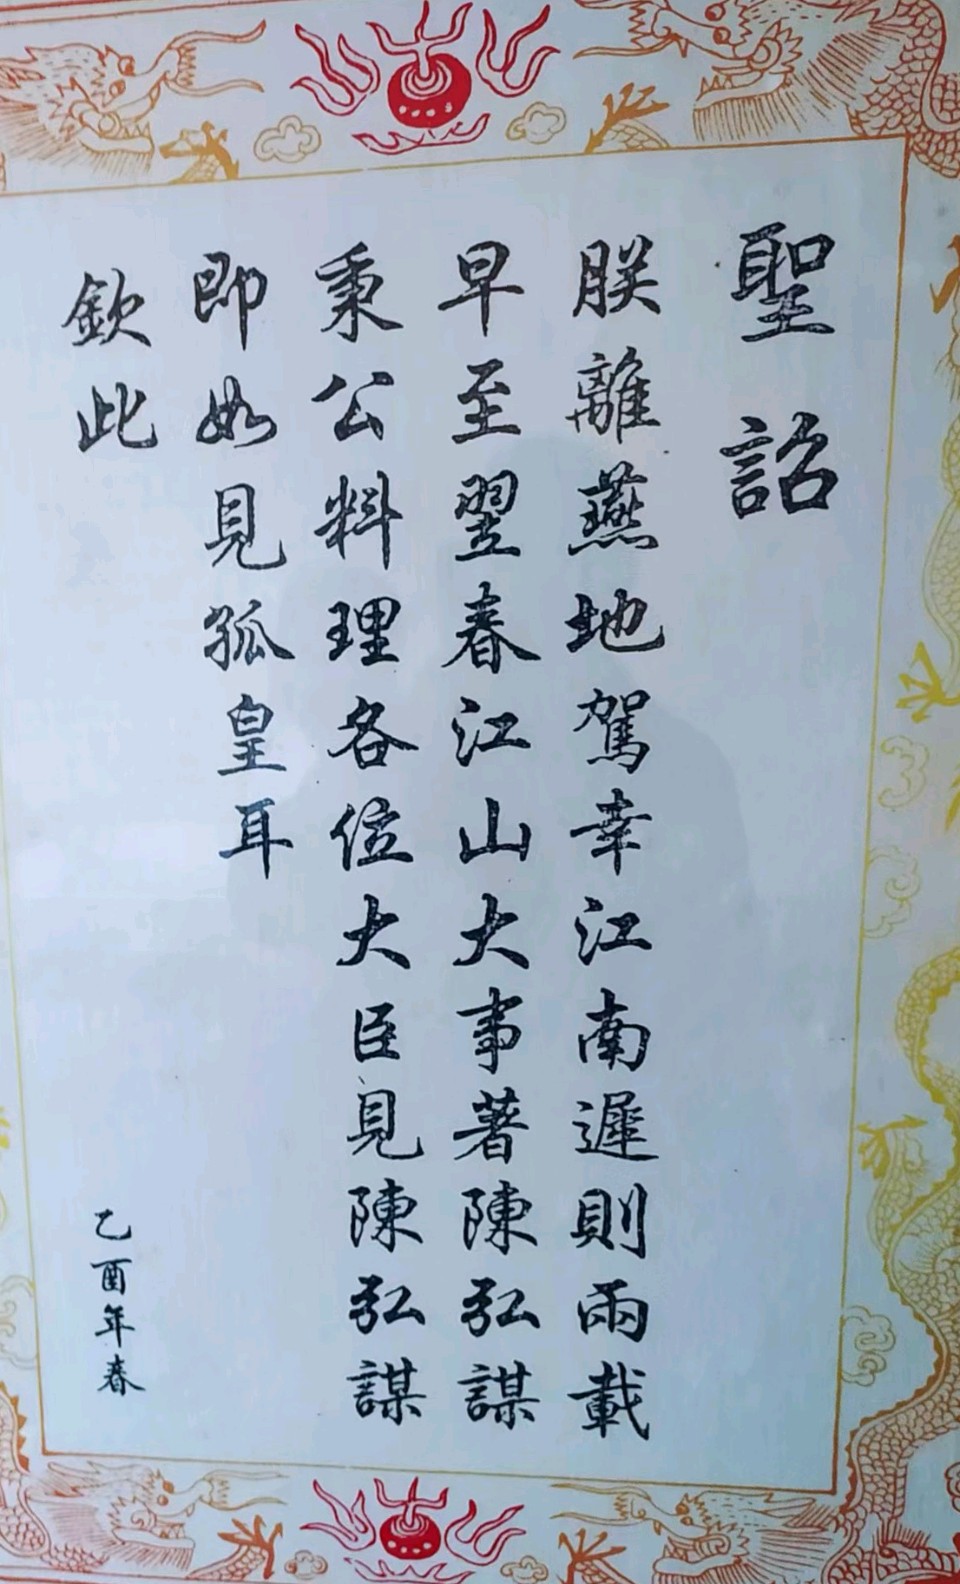 聖詔
朕離燕地駕幸江南遲則兩載
早至翌春江山大事著陳弘謀
秉公料理各位大臣見陳弘謀
即如見孤皇耳
欽此
乙酉年春